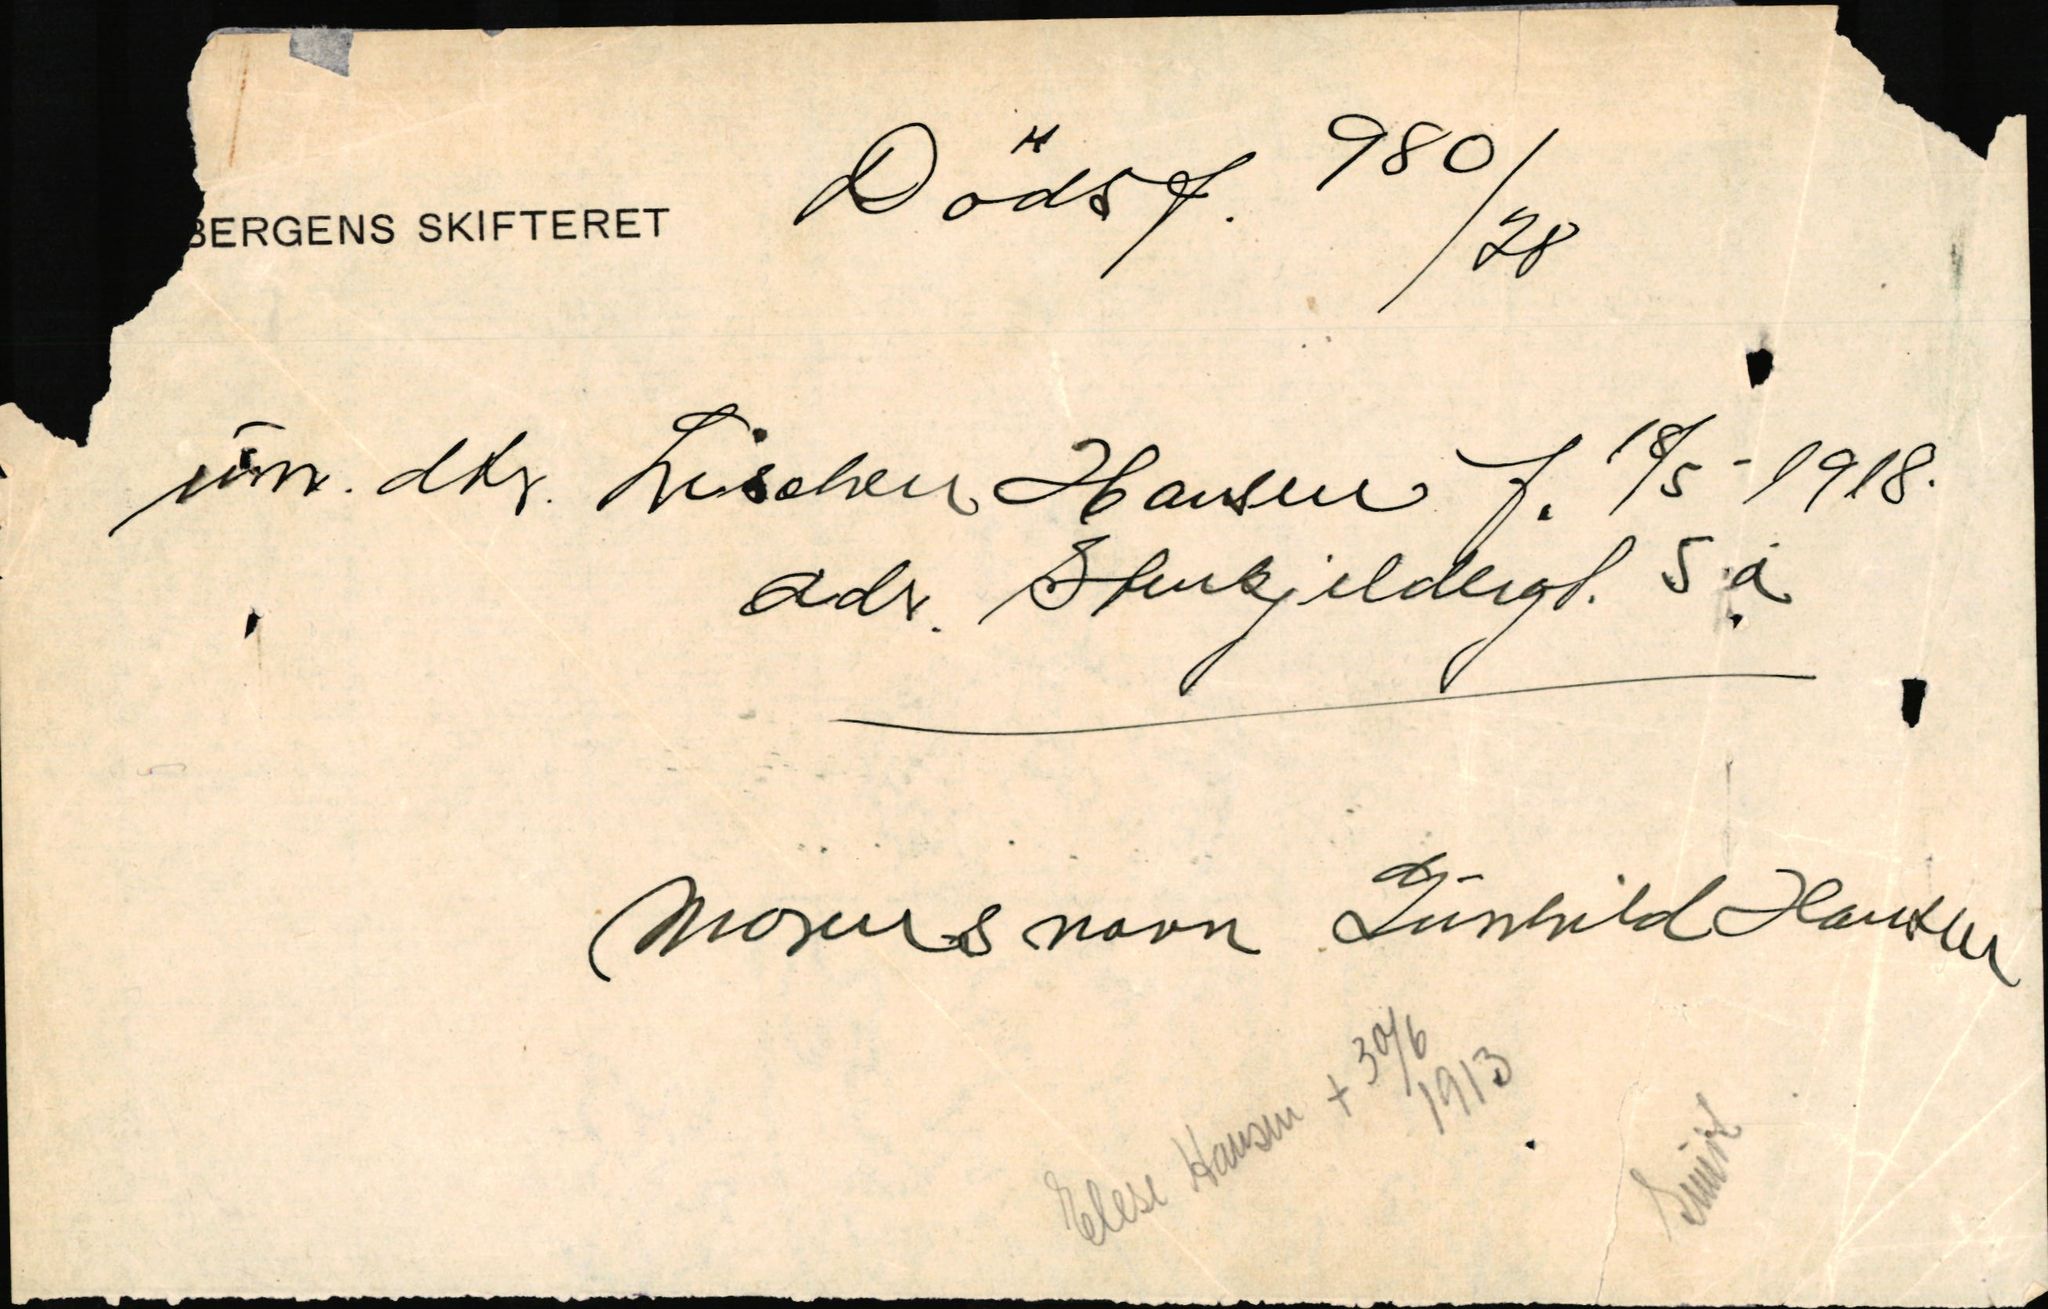 Dödsf. 980/28
BERGENS SKIFTERET
um. dtr. Lischen Hansen f. 18/5-1918.
adr. Stenkjeldergt. 5 a
Morens navn Gunhild Hansen
Elese Hansen + 30/6
1913